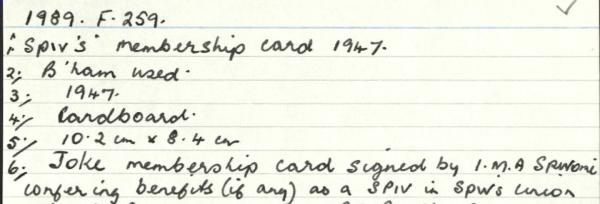 1989. F. 259.
1; "Spiv's" membership card 1947.
2; B'ham used.
3; 1947.
4; Cardboard.
5; 10.2 cm x 8.4 cm
6; Joke membership card signed by I.M.A Spivoni
confering benefits (if any) as a SPIV in Spivs union